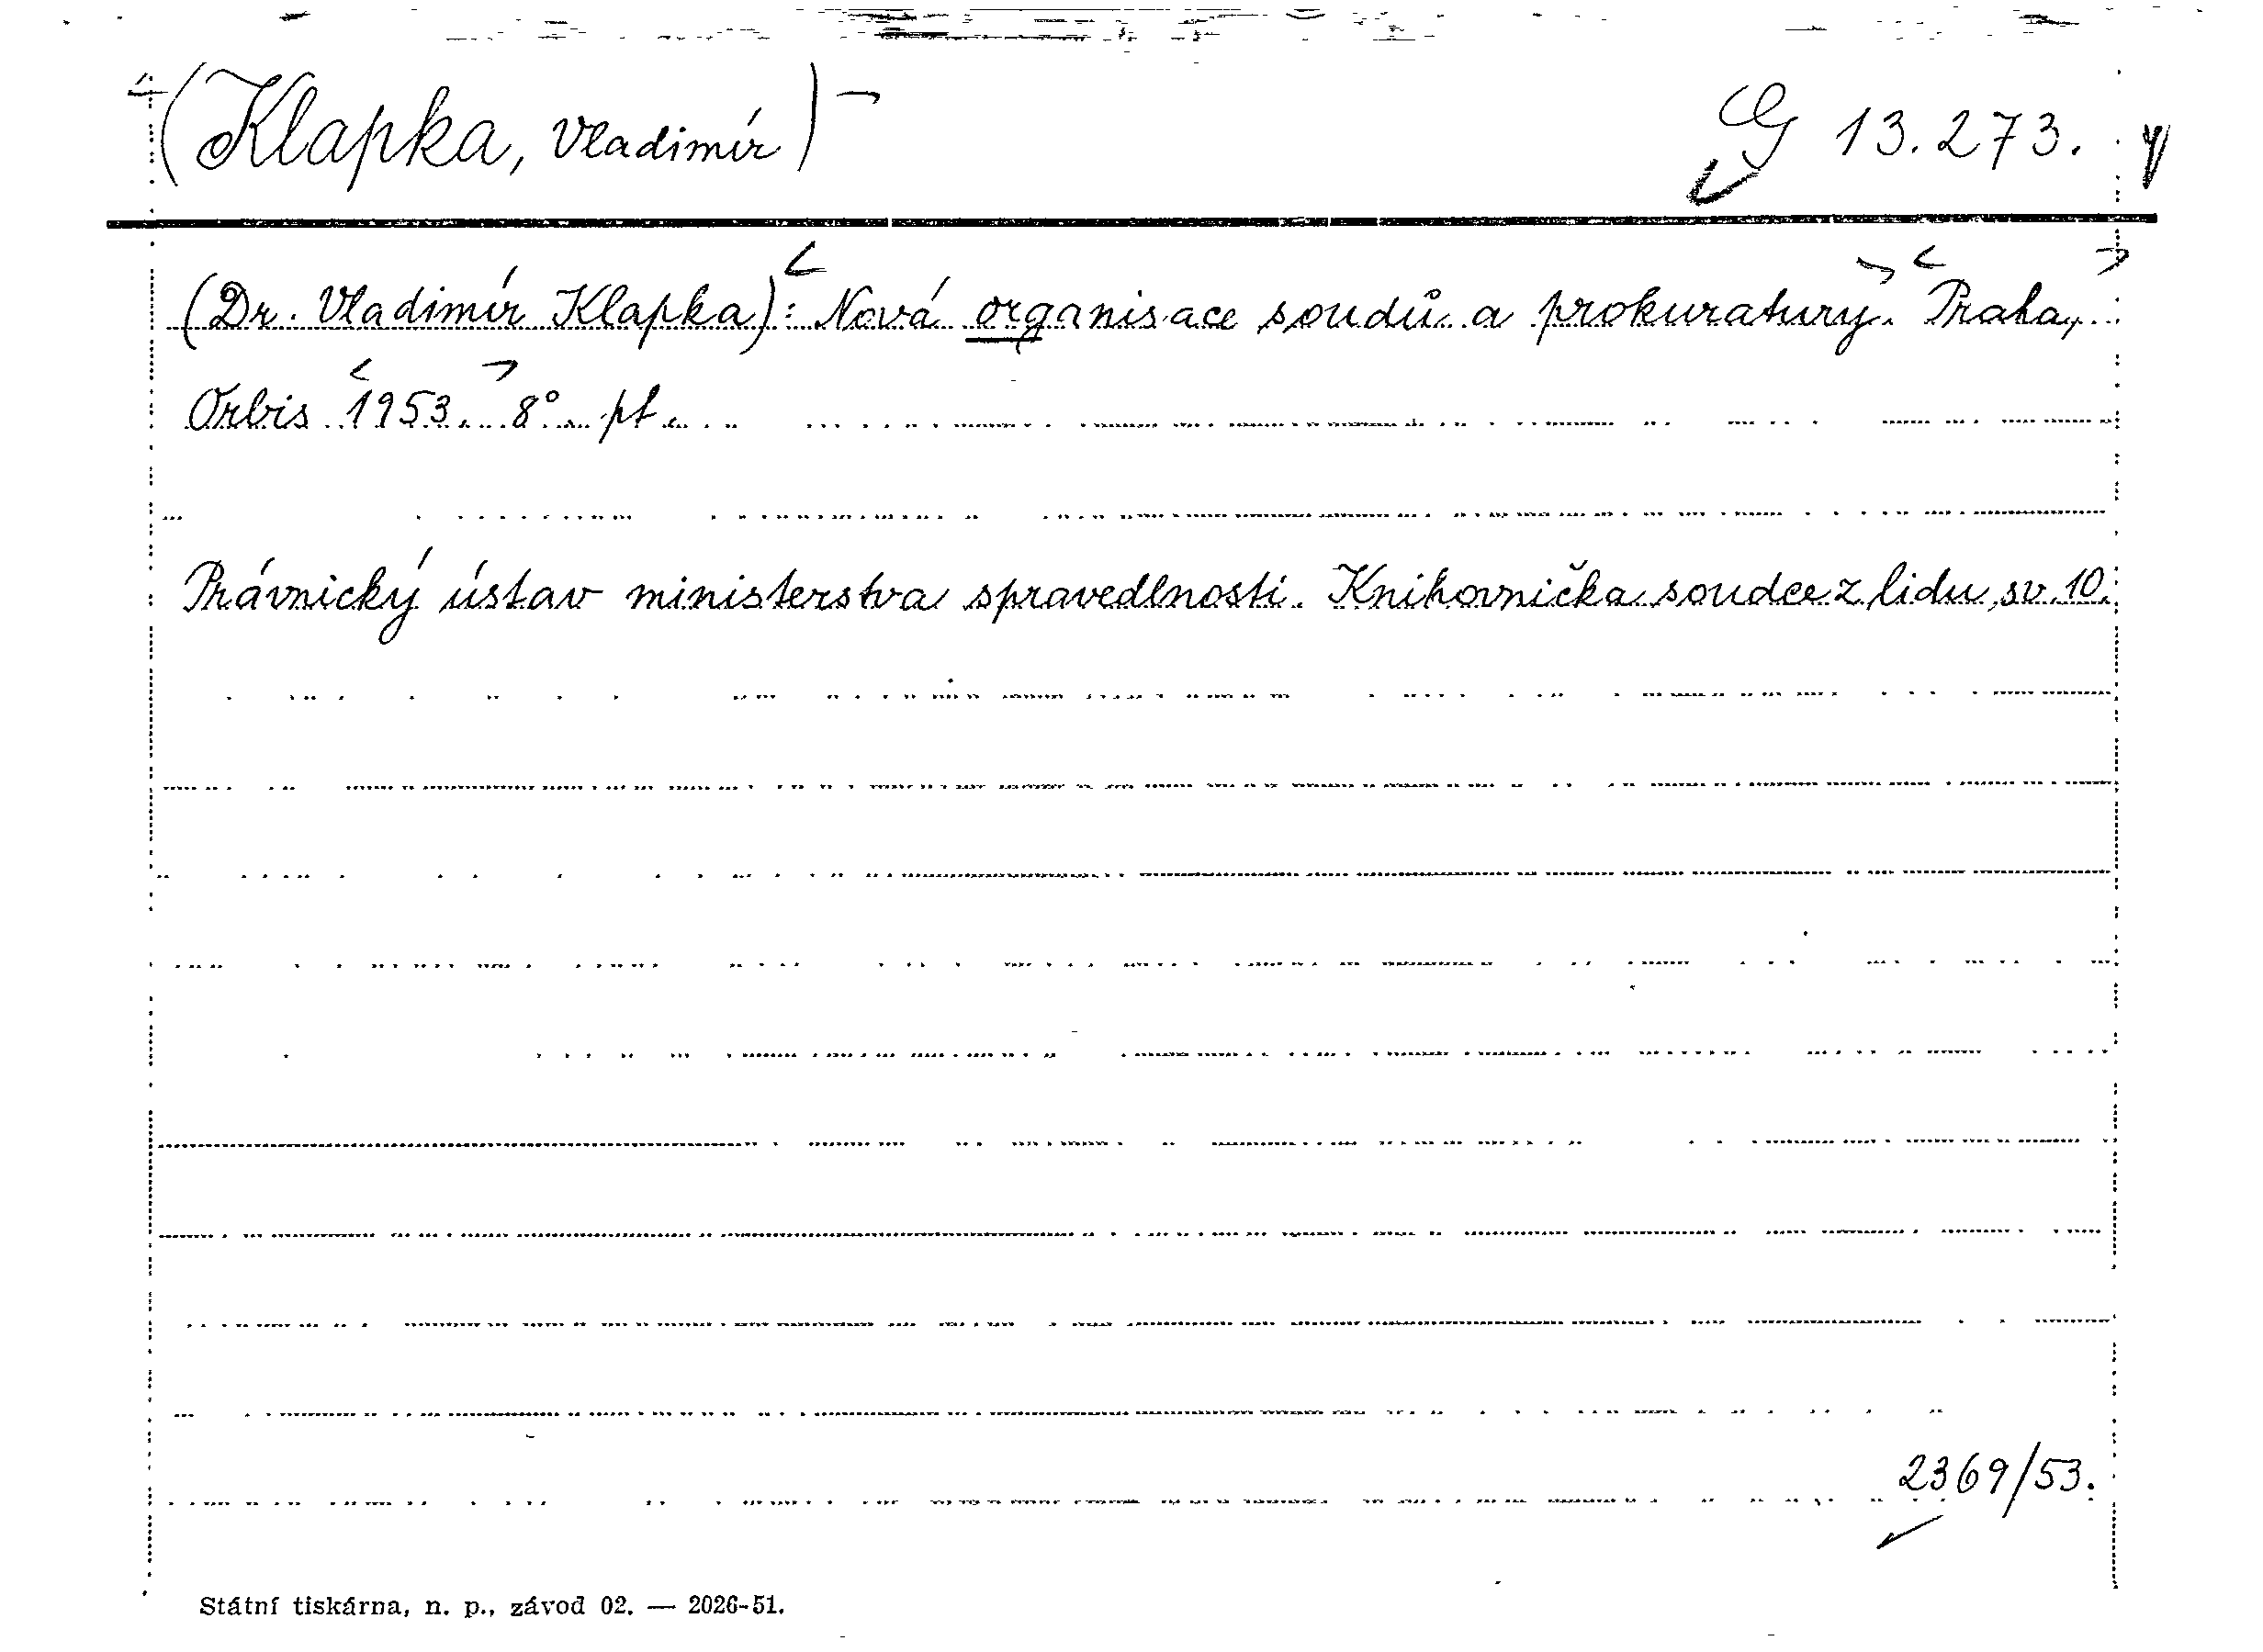 (Klapka, Vladimír) G 13.273.
(Dr. Vladimír Klapka): Nová organisace soudů a prokuratury. Praha,
Orbis 1953. 8° pt.
Právnický ústav ministerstva spravedlnosti. Knihovnička soudce z lidu, sv. 10.
2369/53.
Státní tiskárna, n. p., závod 02. — 2026-51.